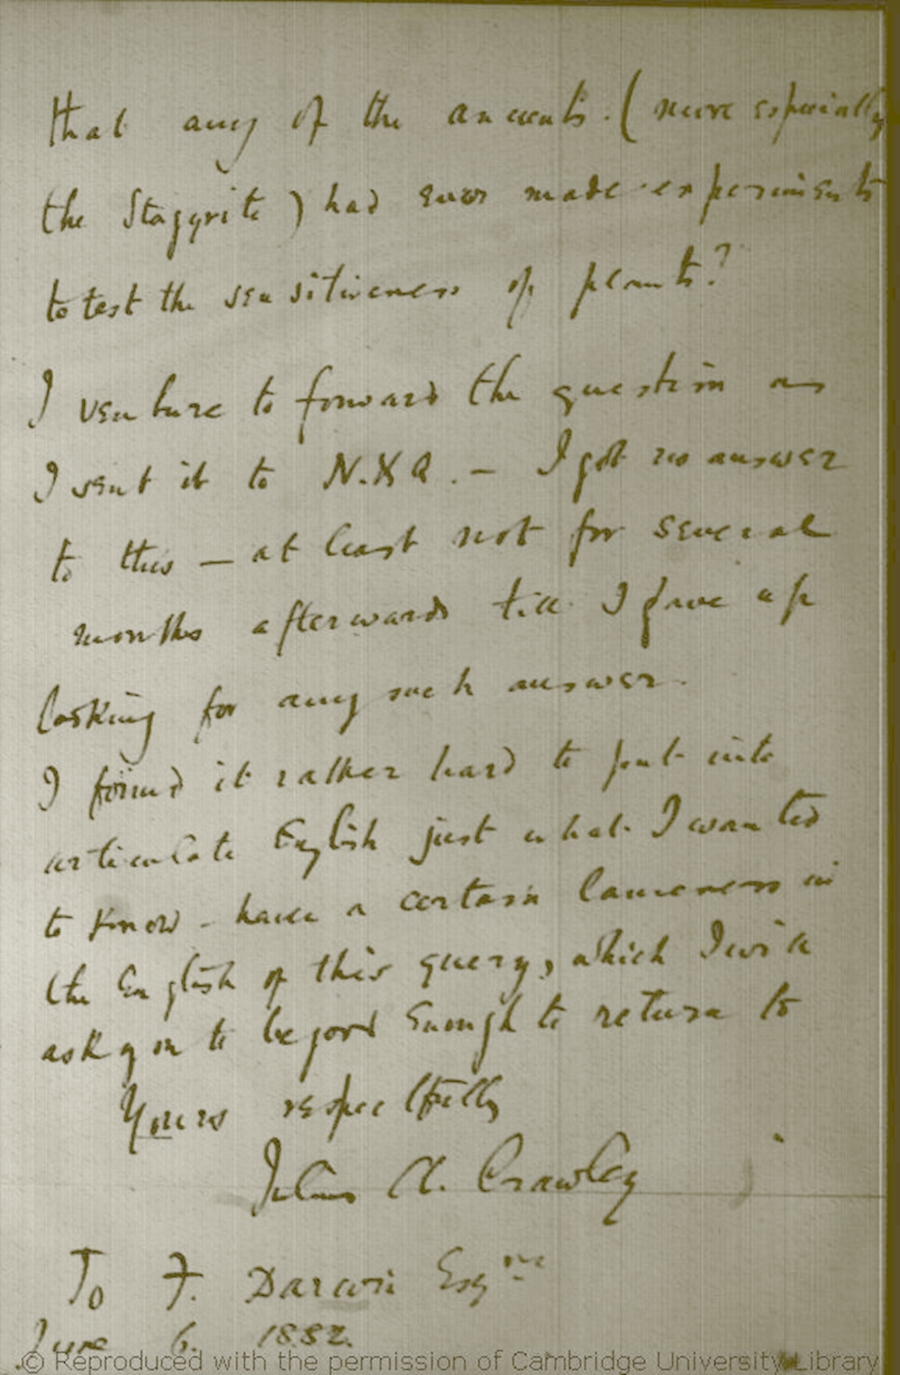 that any of the ancients. (more especially
the Stagyrite) had ever made experiments
to test the sensitiveness of plants?
I venture to forward the question as
I sent it to N. & Q. — I got no answer
to this — at least not for several
months afterwards till I gave up
looking for any such answer.
I found it rather hard to put into
articulate English just what I wanted
to know - hence a certain lameness in
the English of this query, which I will
ask you to be good enough to return to
Yours respectfully
Julius A. Crawley
To F. Darwin Esqre
June 6. 1882.
© Reproduced with the permission of Cambridge University Library